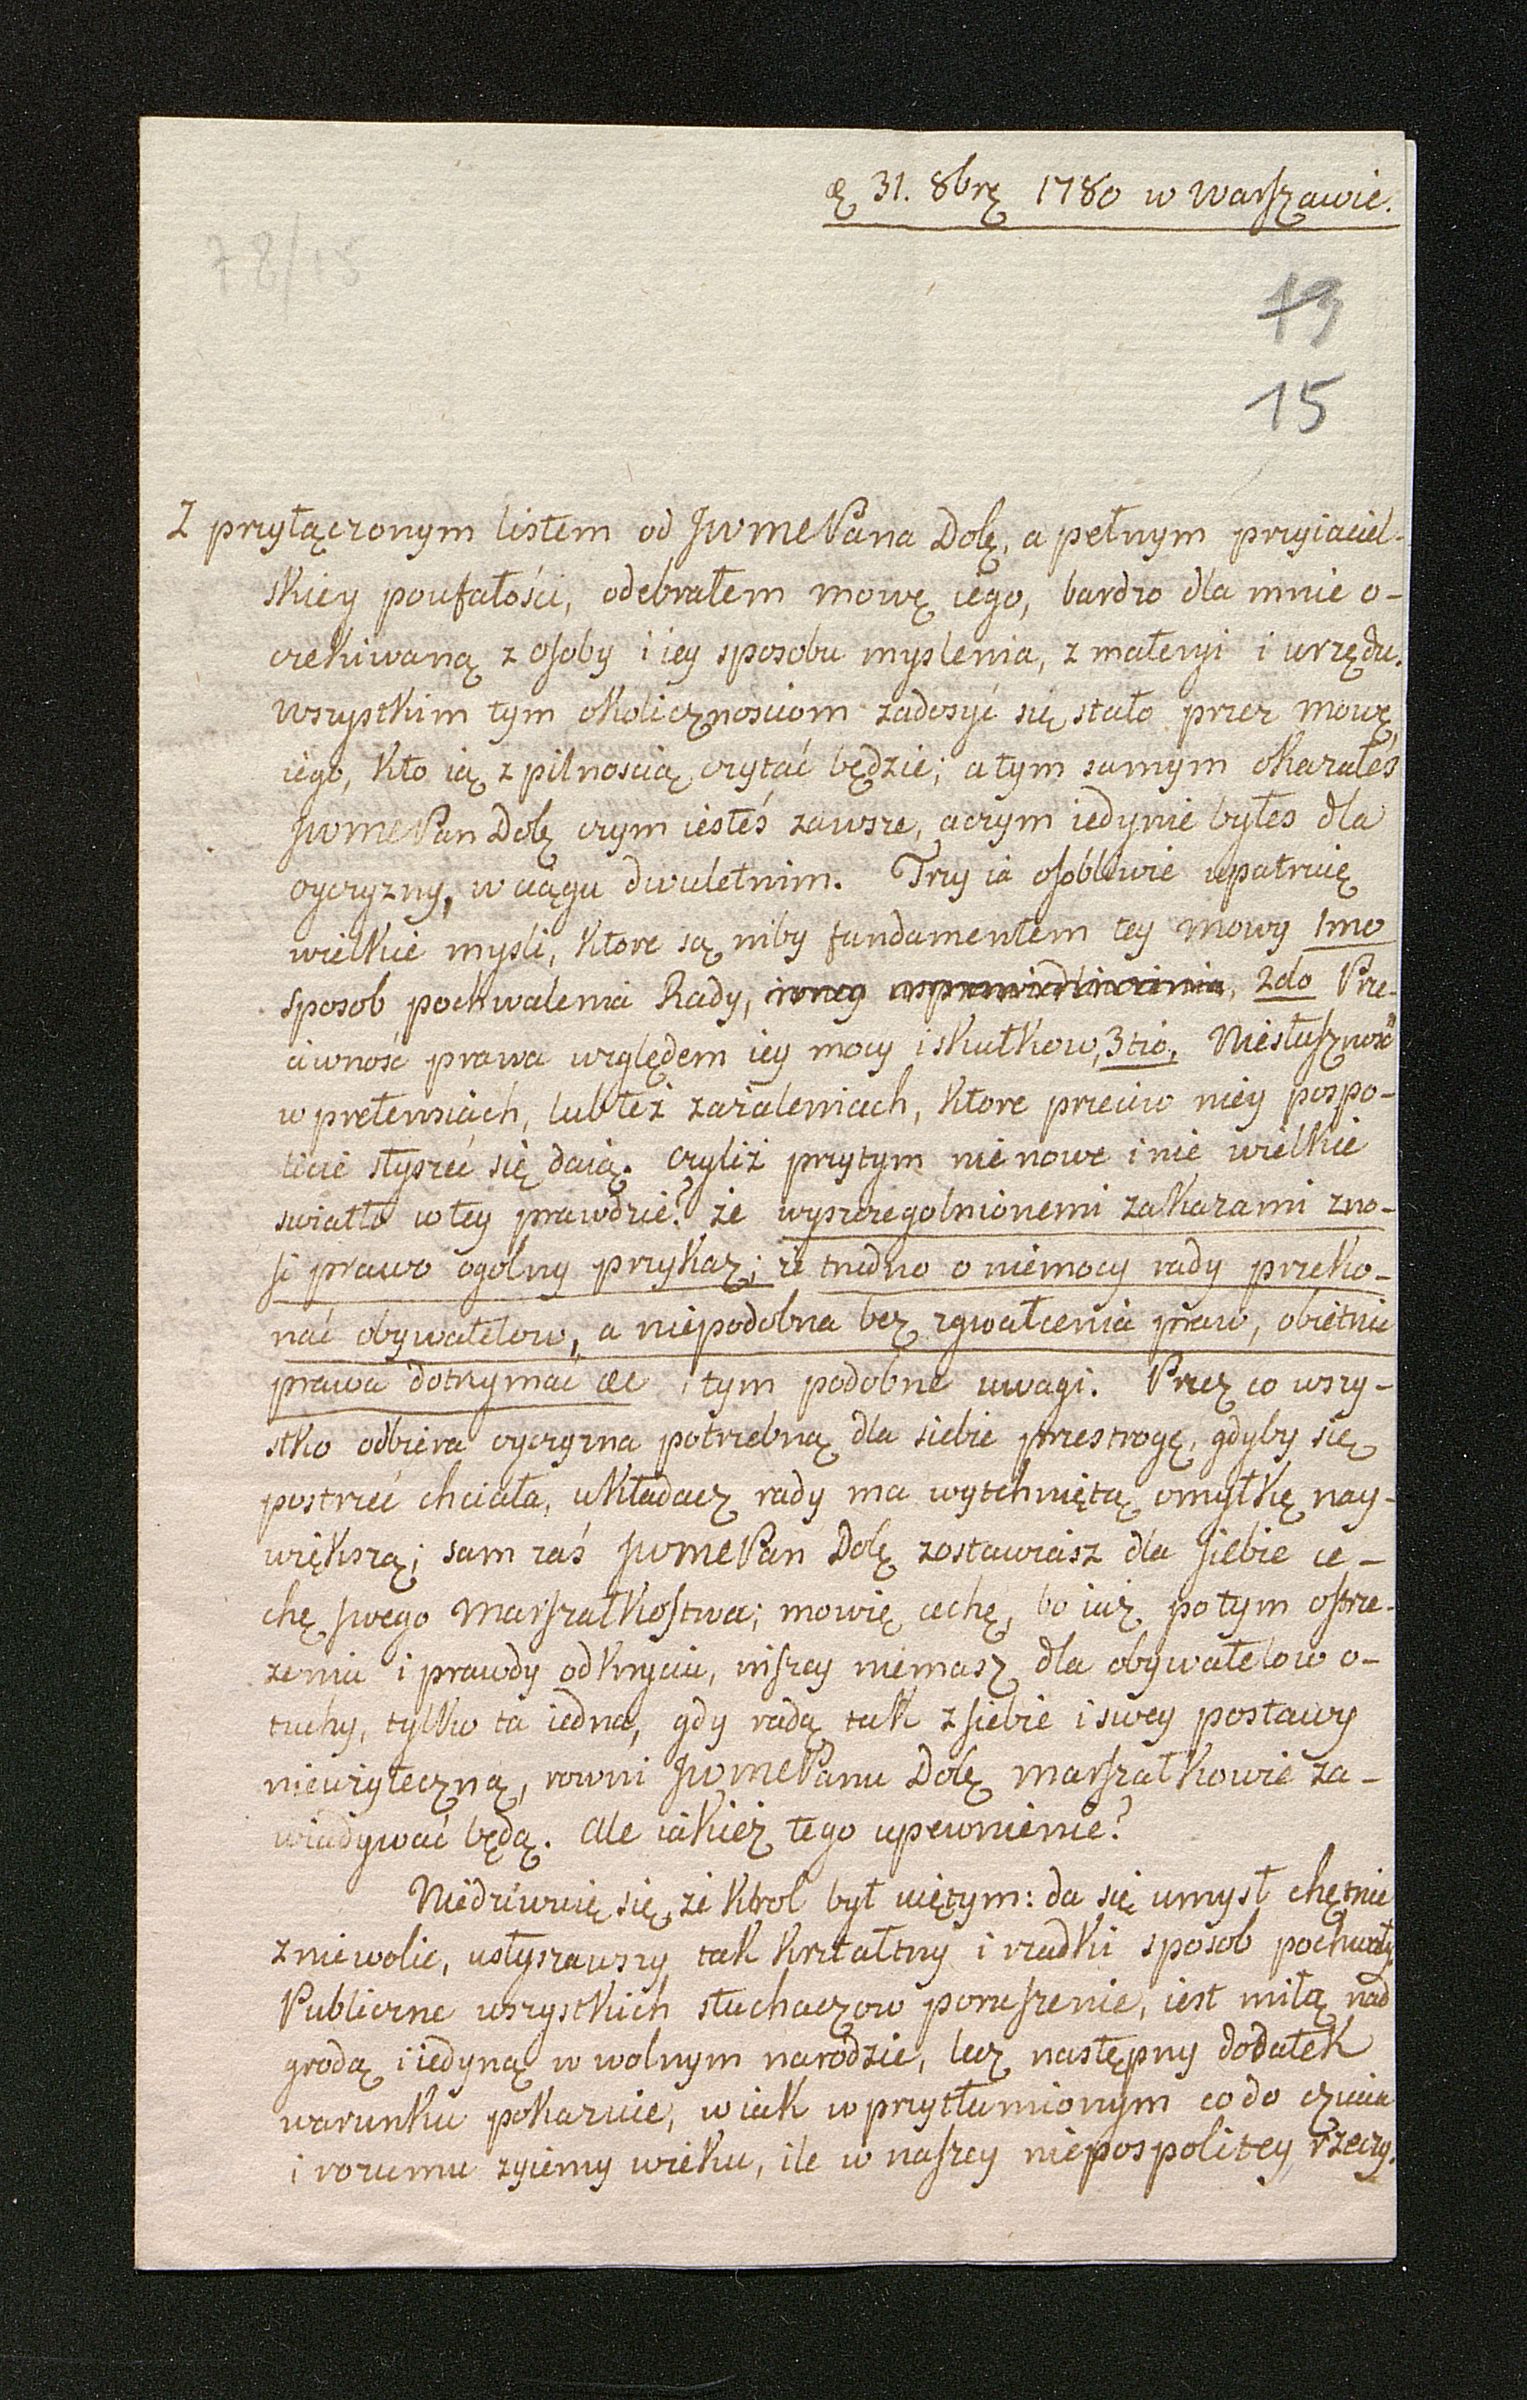 ę 31. 8brę 1780 w Warszawie.
78/15
73
15
Z przyłączonym listem od JWMePana Dolę, a pełnym przyiaciel-
skiey poufałości, odebrałem mowę iego, bardzo dla mnie o-
czekiwaną z osoby i iey sposobu myslenia, z materyi i urzędu.
wszystkim tym okolicznosciom zadosyć się stało przez mowę
iego, kto ią z pilnoscią czytać będzie; a tym samym okazałeś
JWMePan Dolę czym iesteś zawsze, a czym iedynie byłes dla
oyczyzny, w ciągu dwuletnim. Trzy ia osobliwie upatruię
wielkie mysli, ktore są niby fundamentem tey mowy 1mo
sposob pochwalenia Rady, 2do Prze-
ciwność prawa względem iey mocy i skutkow, 3tio, Niesłuszność
w pretensiach, lub też zażaleniach, ktore przeciw niey pospo-
licie słyszeć się daią. Czyliż przytym nie nowe i nie wielkie
swiatło w tey prawdzie? że wyszczegolnionemi zakazami zno-
si prawo ogolny przykaz; że trudno o niemocy rady przeko-
nać obywatelow, a niepodobna bez zgwałcenia praw, obietnic
prawa dotrzymać etc i tym podobne uwagi. Przez co wszy-
stko odbiera oyczyzna potrzebną dla siebie przestrogę, gdyby się
postrzec chciała, układacz rady ma wytchniętą omyłkę nay-
większą; sam zaś JWMePan Dolę zostawiasz dla siebie ce-
chę swego Marszałkostwa; mowię cechę, bo iuż po tym ostrze-
żeniu i prawdy odkryciu, inszey niemasz dla obywatelow o-
tuchy, tylko ta iedna, gdy radą tak z siebie i swey postawy
nieużyteczną, rowni JWMePanu Dolę marszałkowie za-
wiadywać będą. Ale iakież tego upewnienie?
Niedziwuię się, że Krol był uiętym: da się umysł chętnie
zniewolić, usłyszawszy tak kształtny i rzadki sposob pochwały.
Publiczne wszystkich słuchaczow poruszenie, iest miłą nad
grodą i iedyną w wolnym narodzie, lecz następny dodatek
warunku pokazuie, w iak w przytłumionym co do czucia
i rozumu zyiemy wieku, ile w naszey niepospolitey rzeczy.